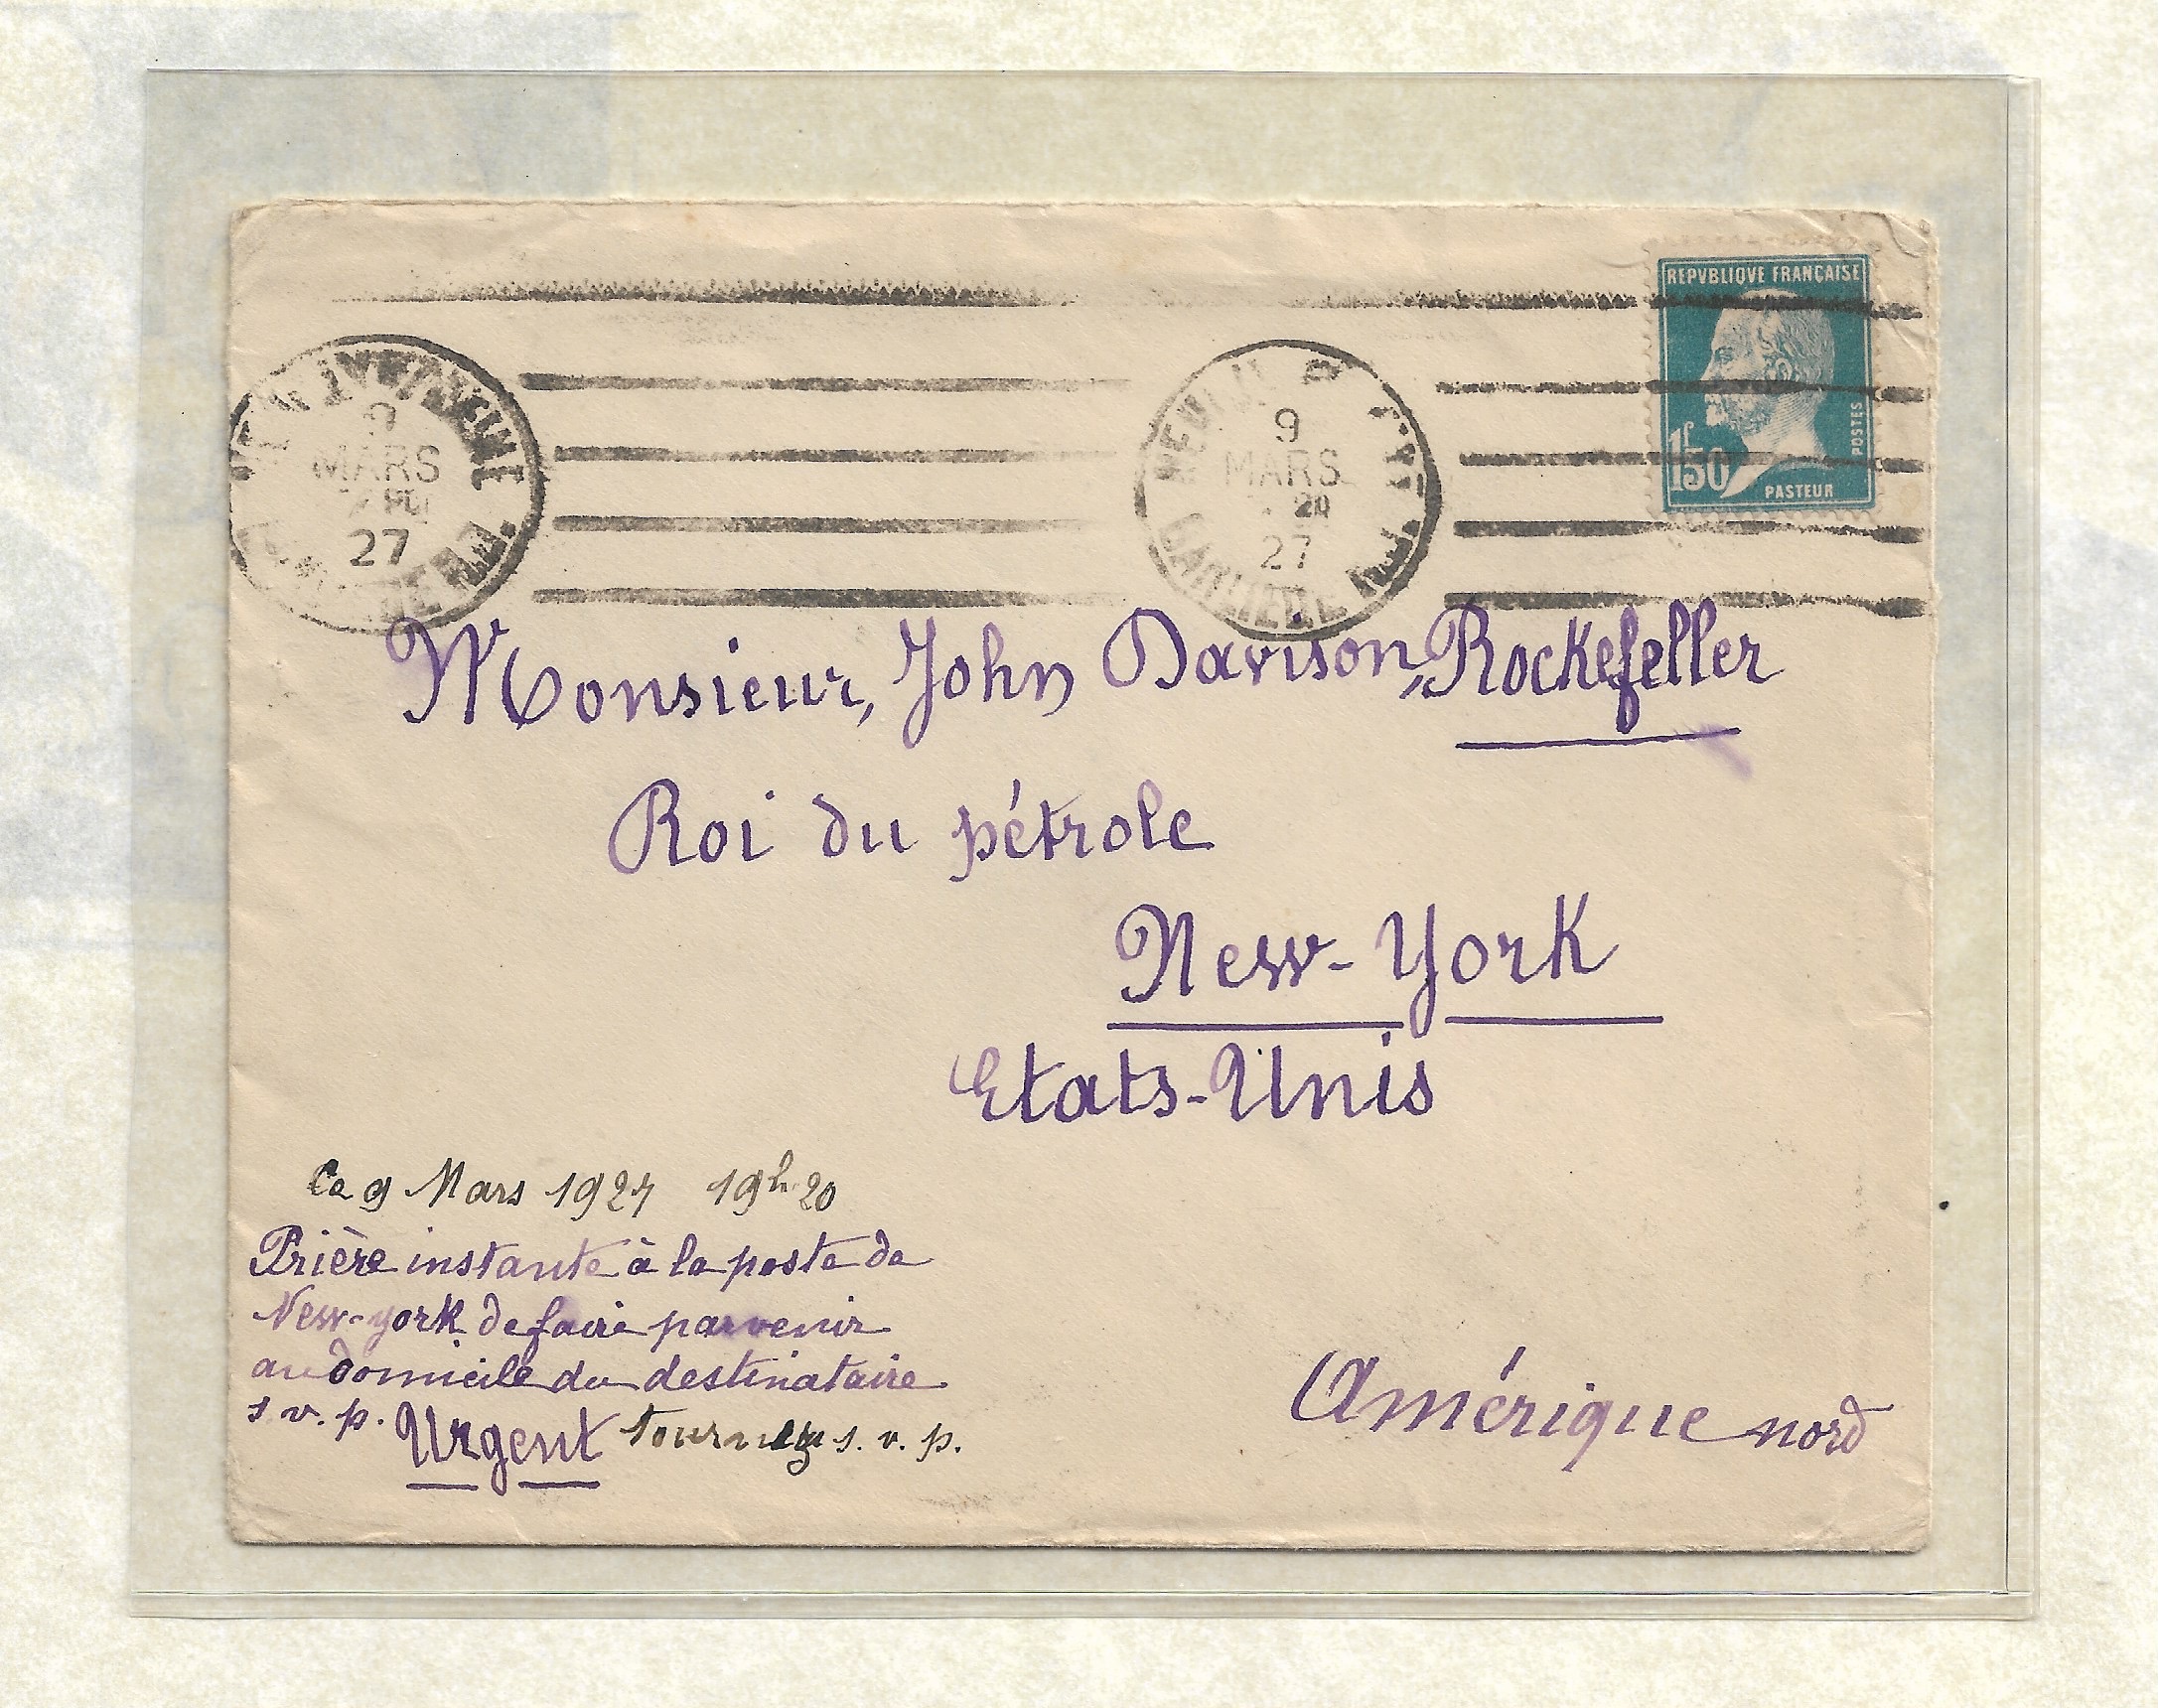 REPVBLIQVE FRANÇAISE
1f50
POSTES
PASTEUR
9
MARS
27
9
MARS
27
Monsieur, John Davison, Rockefeller
Roi du pétrole
New-York
Etats-Unis
Ce 9 Mars 1927 19h 20
Prière instante à la poste de
New-York de faire parvenir
au domicile du destinataire
s. v. p. Urgent tournez s. v. p.
Amérique nord